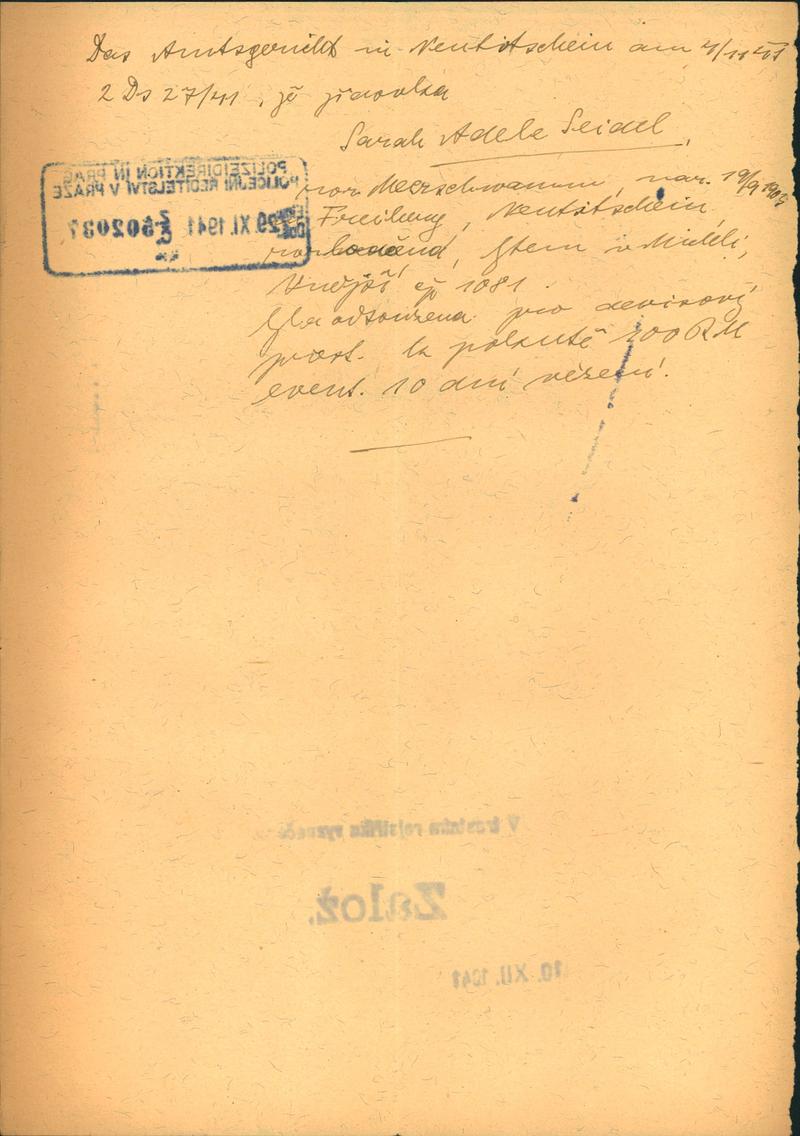 Das Amtsgericht in Neutitschein am 4/11 41
2 Ds 27/41, že židovka
Sarah Adele Seidel,
roz. Meerschwamm, nar. 19/9 1909
Freiberg, Neutitschein,
POLIZEIDIREKTION IN PRAG
POLICEJNÍ ŘEDITELSTVÍ V PRAZE
29.XI.1941
čp 1081.
Byla odsouzena pro devisový
přest. k pokutě 200 RM
event. 10 dní vězení.
V trestním rejstříku
Založ.
10. XII. 1941